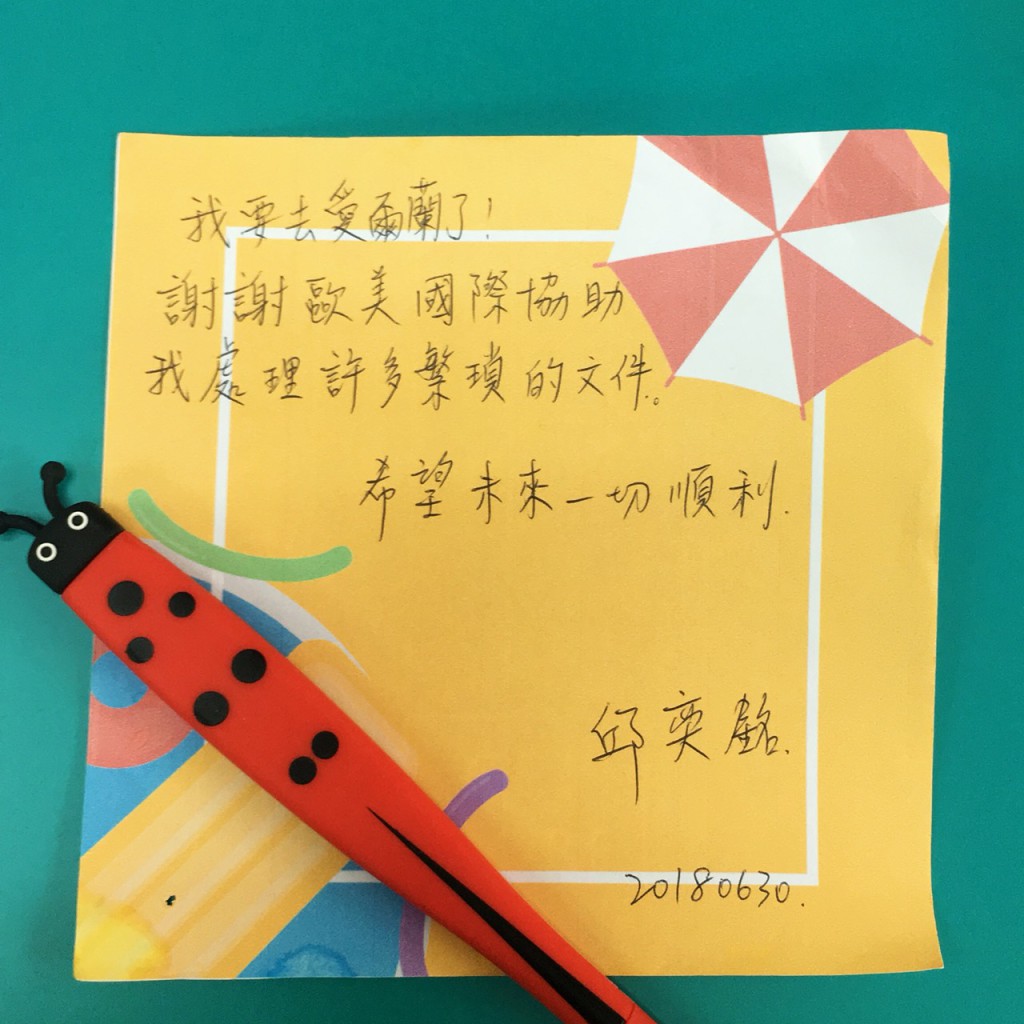 我要去愛爾蘭了!
謝謝歐美國際協助
我處理許多繁瑣的文件。
希望未來一切順利.
邱奕銘.
20180630.